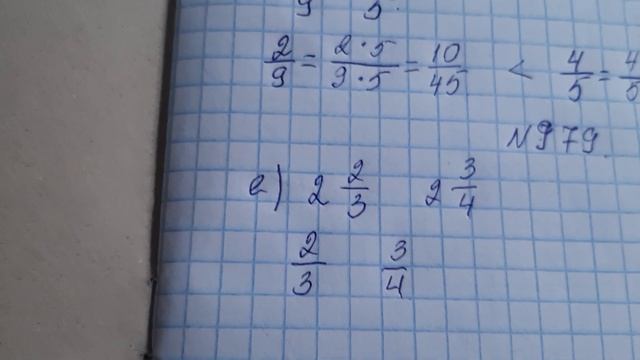 2/9 = 2·5/9·5 = 10/45 < 4/5 =
N979
е) 2 2/3 2 3/4
2/3 3/4